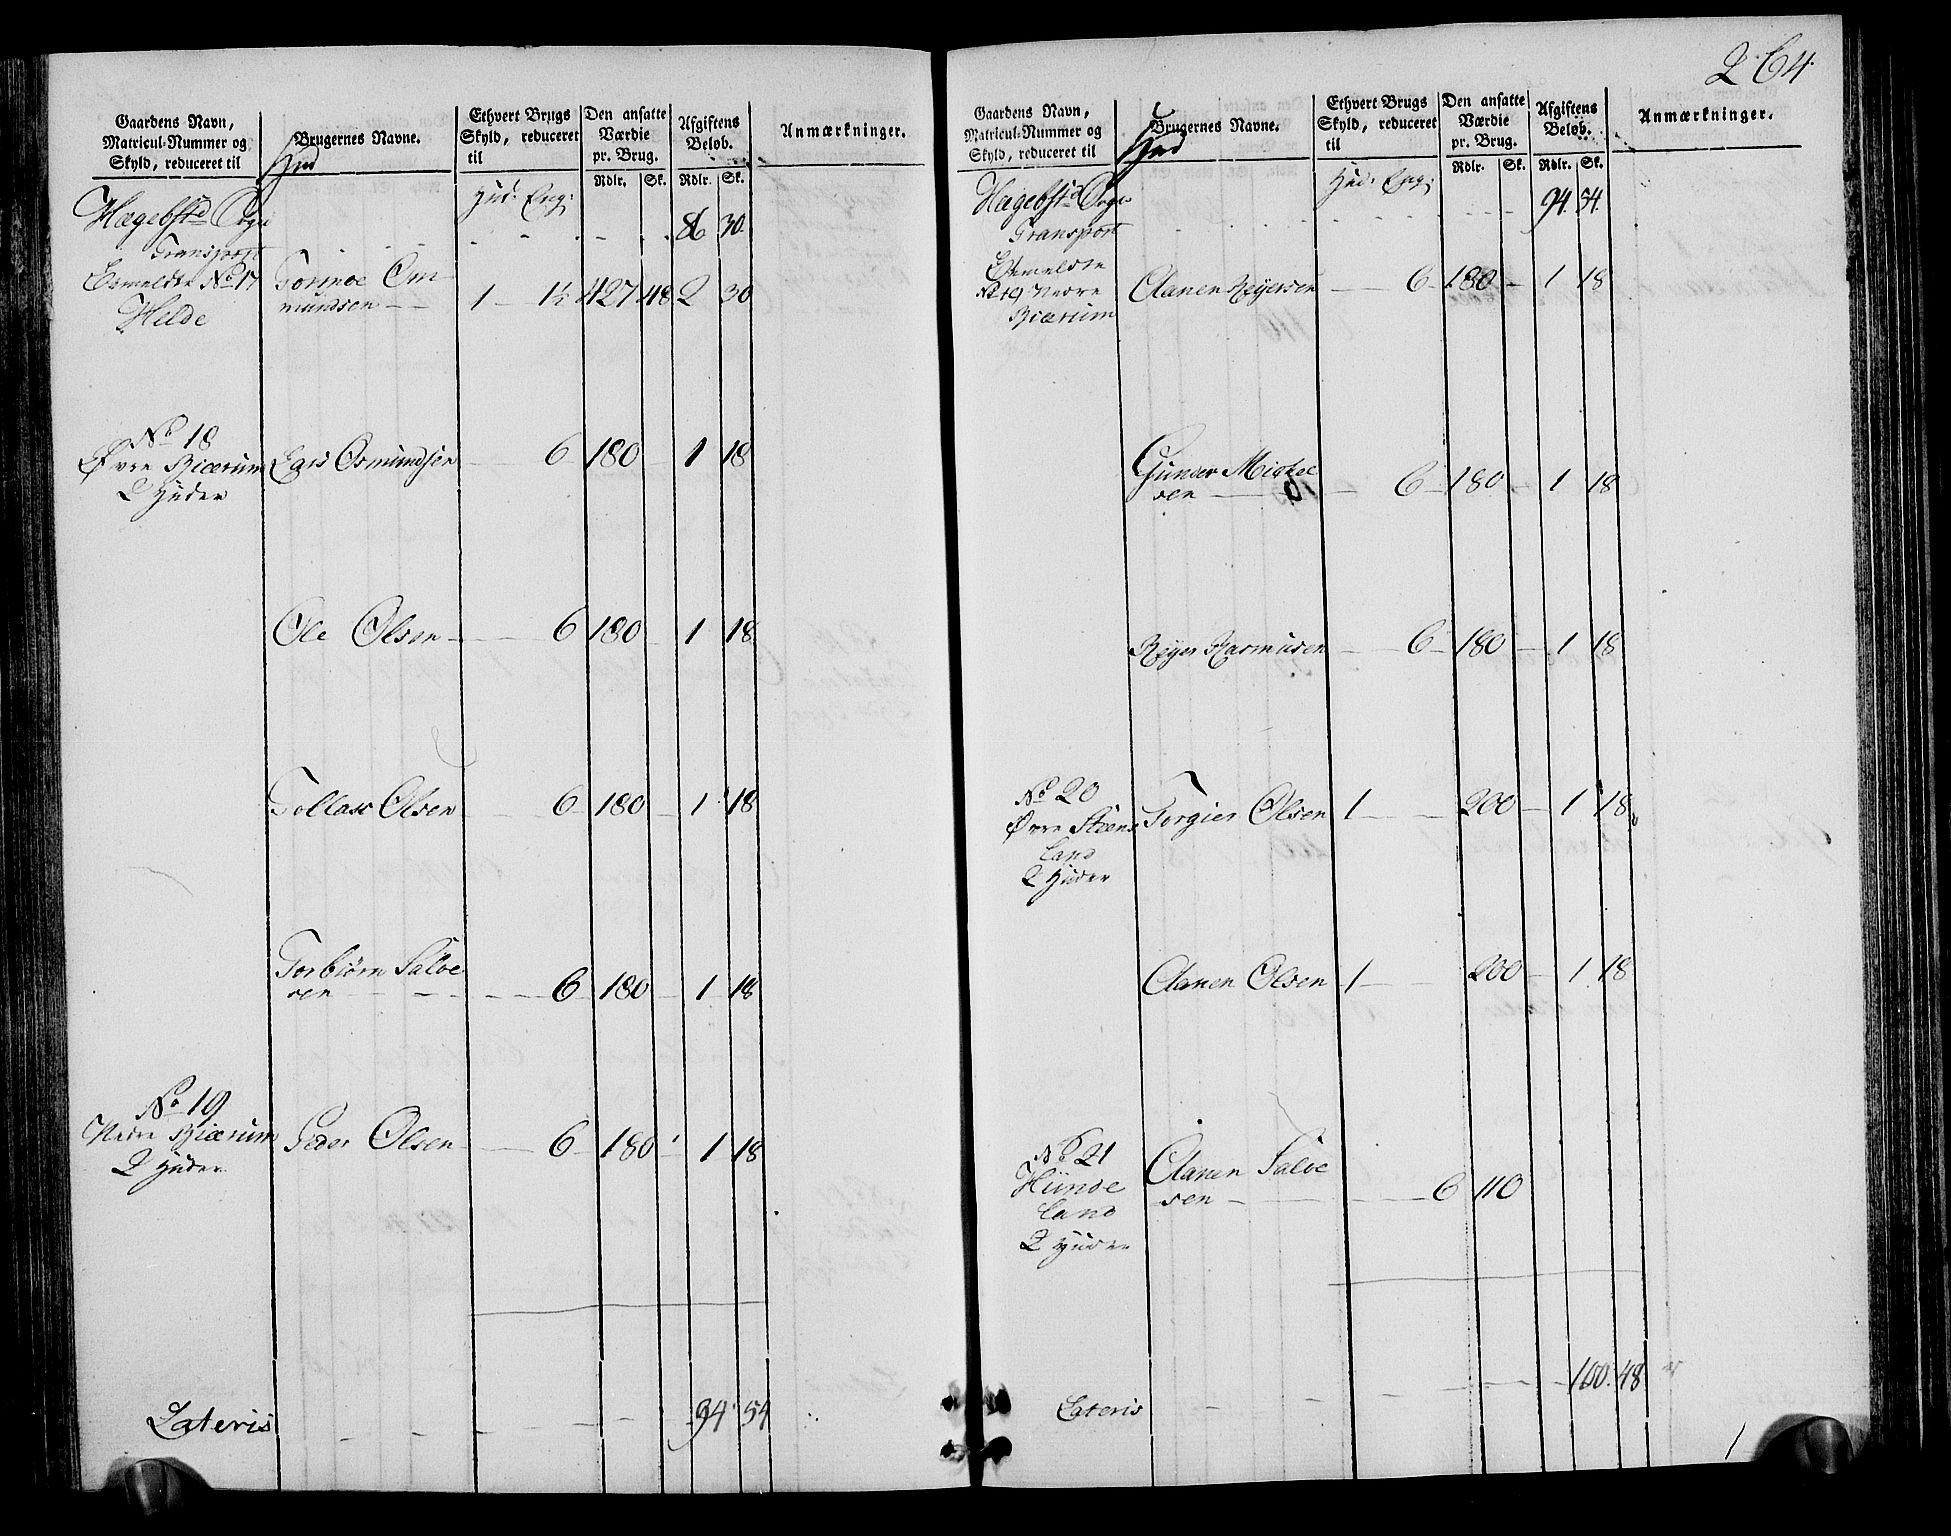 Gaardens Navn,
Matricul-Nummer og
Skyld, reduceret til
Brugernes Navne.
Ethvert Brugs
Skyld, reduceret
til
Den ansatte
Værdie
pr. Brug.
Rdlr. Sk.
Afgiftens
Beløb.
Rdlr. Sk.
Anmærkninger.
Hud: Eng:
Hægebstd Sogn
Transport 86 30
No 17
Helde
Omundsen 1 1½ 427 48 2 30
No 18
Øvre Biærum Lars Osmundsen 6 180 1 18
2 Huder
Ole Olsen 6 180 1 18
Tollass Olsen 6 180 1 18
Torbiørn Salve
sen 6 180 1 18
No 19
Nedre Biærum Peder Olsen 6 180 1 18
2 Huder
Lateris 94 54
264
Gaardens Navn,
Matricul-Nummer og
Skyld, reduceret til
Brugernes Navne.
Ethvert Brugs
Skyld, reduceret
til
Den ansatte
Værdie
pr. Brug.
Rdlr. Sk.
Afgiftens
Beløb.
Rdlr. Sk.
Anmærkninger.
Hud: Eng:
Hægebstd Sogn
Transport 94 54
No 19 Nedre
Biærum
Aanen Reijersen 6 180 1 18
Gunder Mickel
sen 6 180 1 18
Reijer Rasmusen 6 180 1 18
No 20
Øvre Steens
land
2 Huder
Torgier Olsen 1 200 1 18
Aanen Olsen 1 200 1 18
No 21
Hünde
land
2 Huder
Aanen Salve
sen 6 110
Lateris 100 48